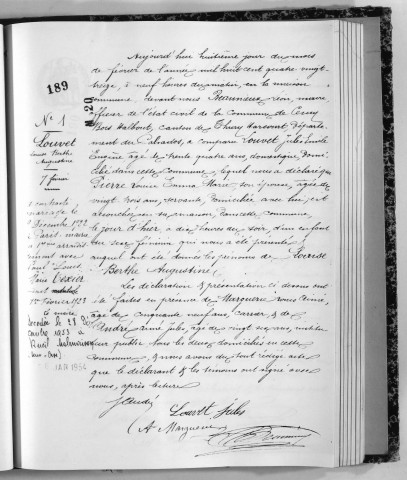 189
N° 1
Louvet
Louise Berthe
Augustine
7 février
a contracté
mariage le
Décembre 1922
à Paris mairie
arrondisse
ment avec
Paul Louis
Texier
1er Février 1923
Le maire
Décédée le 28 Dé
cembre 1953 à
Rueil Malmaison
Aujourd'hui huitième jour du mois
de février de l'année mil huit cent quatre vingt-
treize, à neuf heures du matin, en la maison
commune, devant nous maire,
officier de l'état civil de la Commune de Cesny
Bois Halbout, canton de Thury Harcourt, Départe
ment du Calvados, a comparu Louvet Jules Emile
Eugène âgé de trente quatre ans, domestique, domi
cilié dans cette commune, lequel nous a déclaré que
Pierre Louise Emma Marie, son épouse, âgée de
vingt trois ans, servante, domiciliée avec lui, est
accouchée en sa maison, dans cette commune
le jour d'hier, à dix heures du soir, d'un enfant
du sexe féminin qui nous a été présenté,
auquel ont été donnés les prénoms de Louise
Berthe Augustine.
Les déclaration et présentation ci dessus ont
été faites en présence de Marguerie
âgé de cinquante neuf ans, carrier, & de
André Aimé Jules, âgé de vingt six ans,
tous les deux domiciliés en cette
commune; & nous avons du tout rédigé acte
que le déclarant & les témoins ont signé avec
nous, après lecture
J André
Louvet Jules
A Marguerie